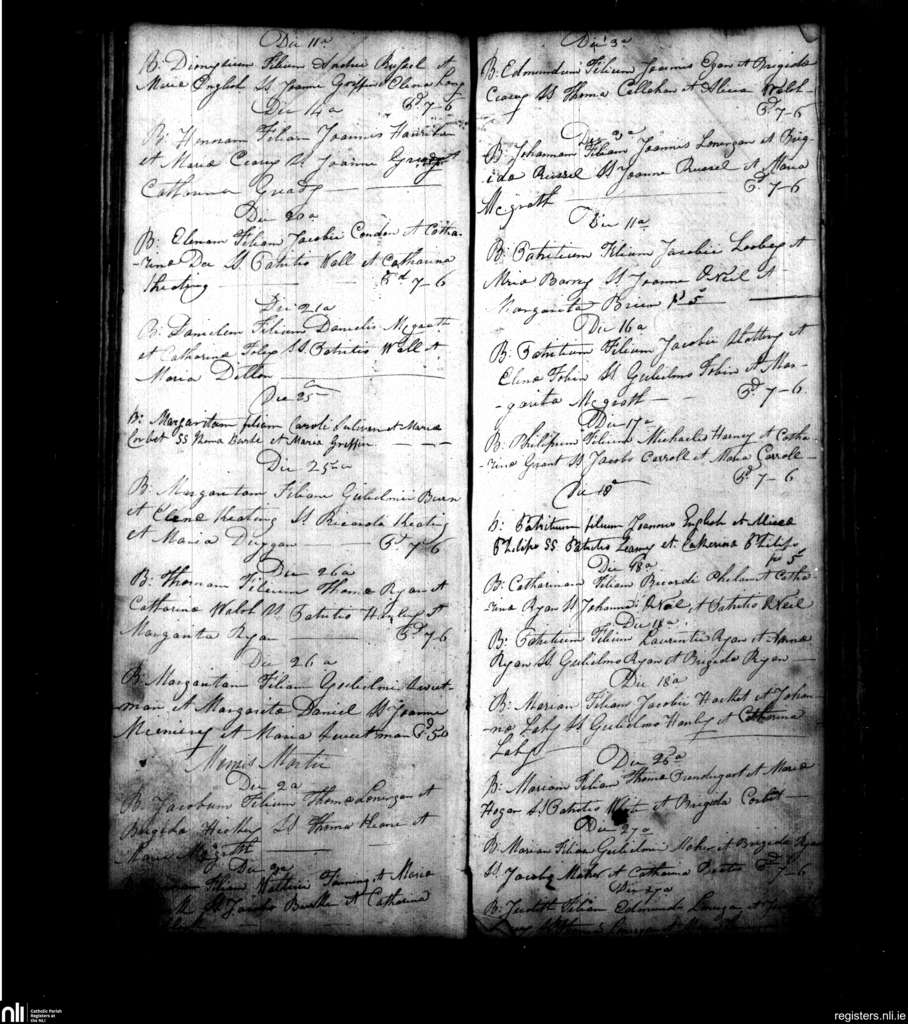 Die 11a
B: Dionysium Filium Andrei Russel et
Maria English SS Joanne Griffin Elena Long
Pd 7-6
Die 14a
B: Honnam Filiam Joannis
et Maria Creary SS Joanne Grady et
Catherina Grady
Die 20a
B: Elenam Filiam Jacobi Condon et Catha-
-rina Doe SS Patritio Wall et Catharina
Kheating Pd 7-6
Die 21a
B: Danielem Filium Danielis Mcgrath
et Catharina Foley SS Patritio Wall et
Maria Dillon
Die 25
B: Margaritam filiam Caroli Sulivan et Maria
Corbet SS Thoma Burke et Maria Griffin
Die 25ta
B: Margaritam Filiam Gulielmi Burn
et Elena Kheating SS Ricardo Kheating
et Maria Duggan Pd 7-6
Die 26a
B: Thomam Filium Thoma Ryan et
Catharina Walsh SS Patritio et
Margarita Ryan Pd 7-6
Die 26a
B: Margaritam Filiam Gulielmi Sweet-
man et Margarita Daniel SS Joanne
et Maria Sweetman Pd 5
Mensis Martii
Die 2a
B: Jacobum Filium Thoma Lonergan et
Brigida Hickey SS Thoma et
Maria Mcgrath
Die
Filiam et Maria
SS Jacobo Burke et Catharina
Die 3a
B: Edmundum Filium Joannis Egan et Brigida
Creary SS Thoma Callahan et Alicia Walsh
Pd 7-6
Die 3a
B: Johannam Filiam Joannis Lonergan et Brig-
ida Russel SS Joanne Russel et Maria
Mcgrath Pd 7-6
Die 11a
B: Patritium Filium Jacobi Looby et
Maria Barry SS Joanne ONeil et
Margarita Brien Pd 5
Die 16a
B: Patritium Filium Jacobi Slattery et
Elena Tobin SS Gulielmo Tobin et Mar-
-garita Mcgrath Pd 7-6
Die 17a
B: Philipum Filium Michaelis Harney et Catha-
-rina Grant SS Jacobo Carroll et Maria Carroll
Pd 7-6
Die 18
B: Patritium filium Joannis English et
Philips SS Patritio Leamy et Catherina Philips
pd 5
Die 18a
B: Catharinam Filiam Ricardi Phelan et Catha-
-rina Ryan SS Johanne ONeil et Patritio ONeil
Die 18a
B: Patritium Filium Laurentii Ryan et Anna
Ryan SS Gulielmo Ryan et Brigida Ryan
Die 18a
B: Mariam Filiam Jacobi Hacket et Johan-
na Lahy SS Gulielmo Hanly et Catharina
Lahy
Die 26a
B: Mariam Filiam Thoma Prendergast et Maria
Hogan SS Patritio White et Brigida Corbet
Die 27a
B: Mariam Filiam Gulielmi Maher et Brigida Ryan
SS Jacobo Maher et Catharina Pd 7-6
Die 27a
B: Judith Filiam Edmundi Lonergan et
SS Lonergan et
nli
Catholic Parish
Registers at
the NLI
registers.nli.ie